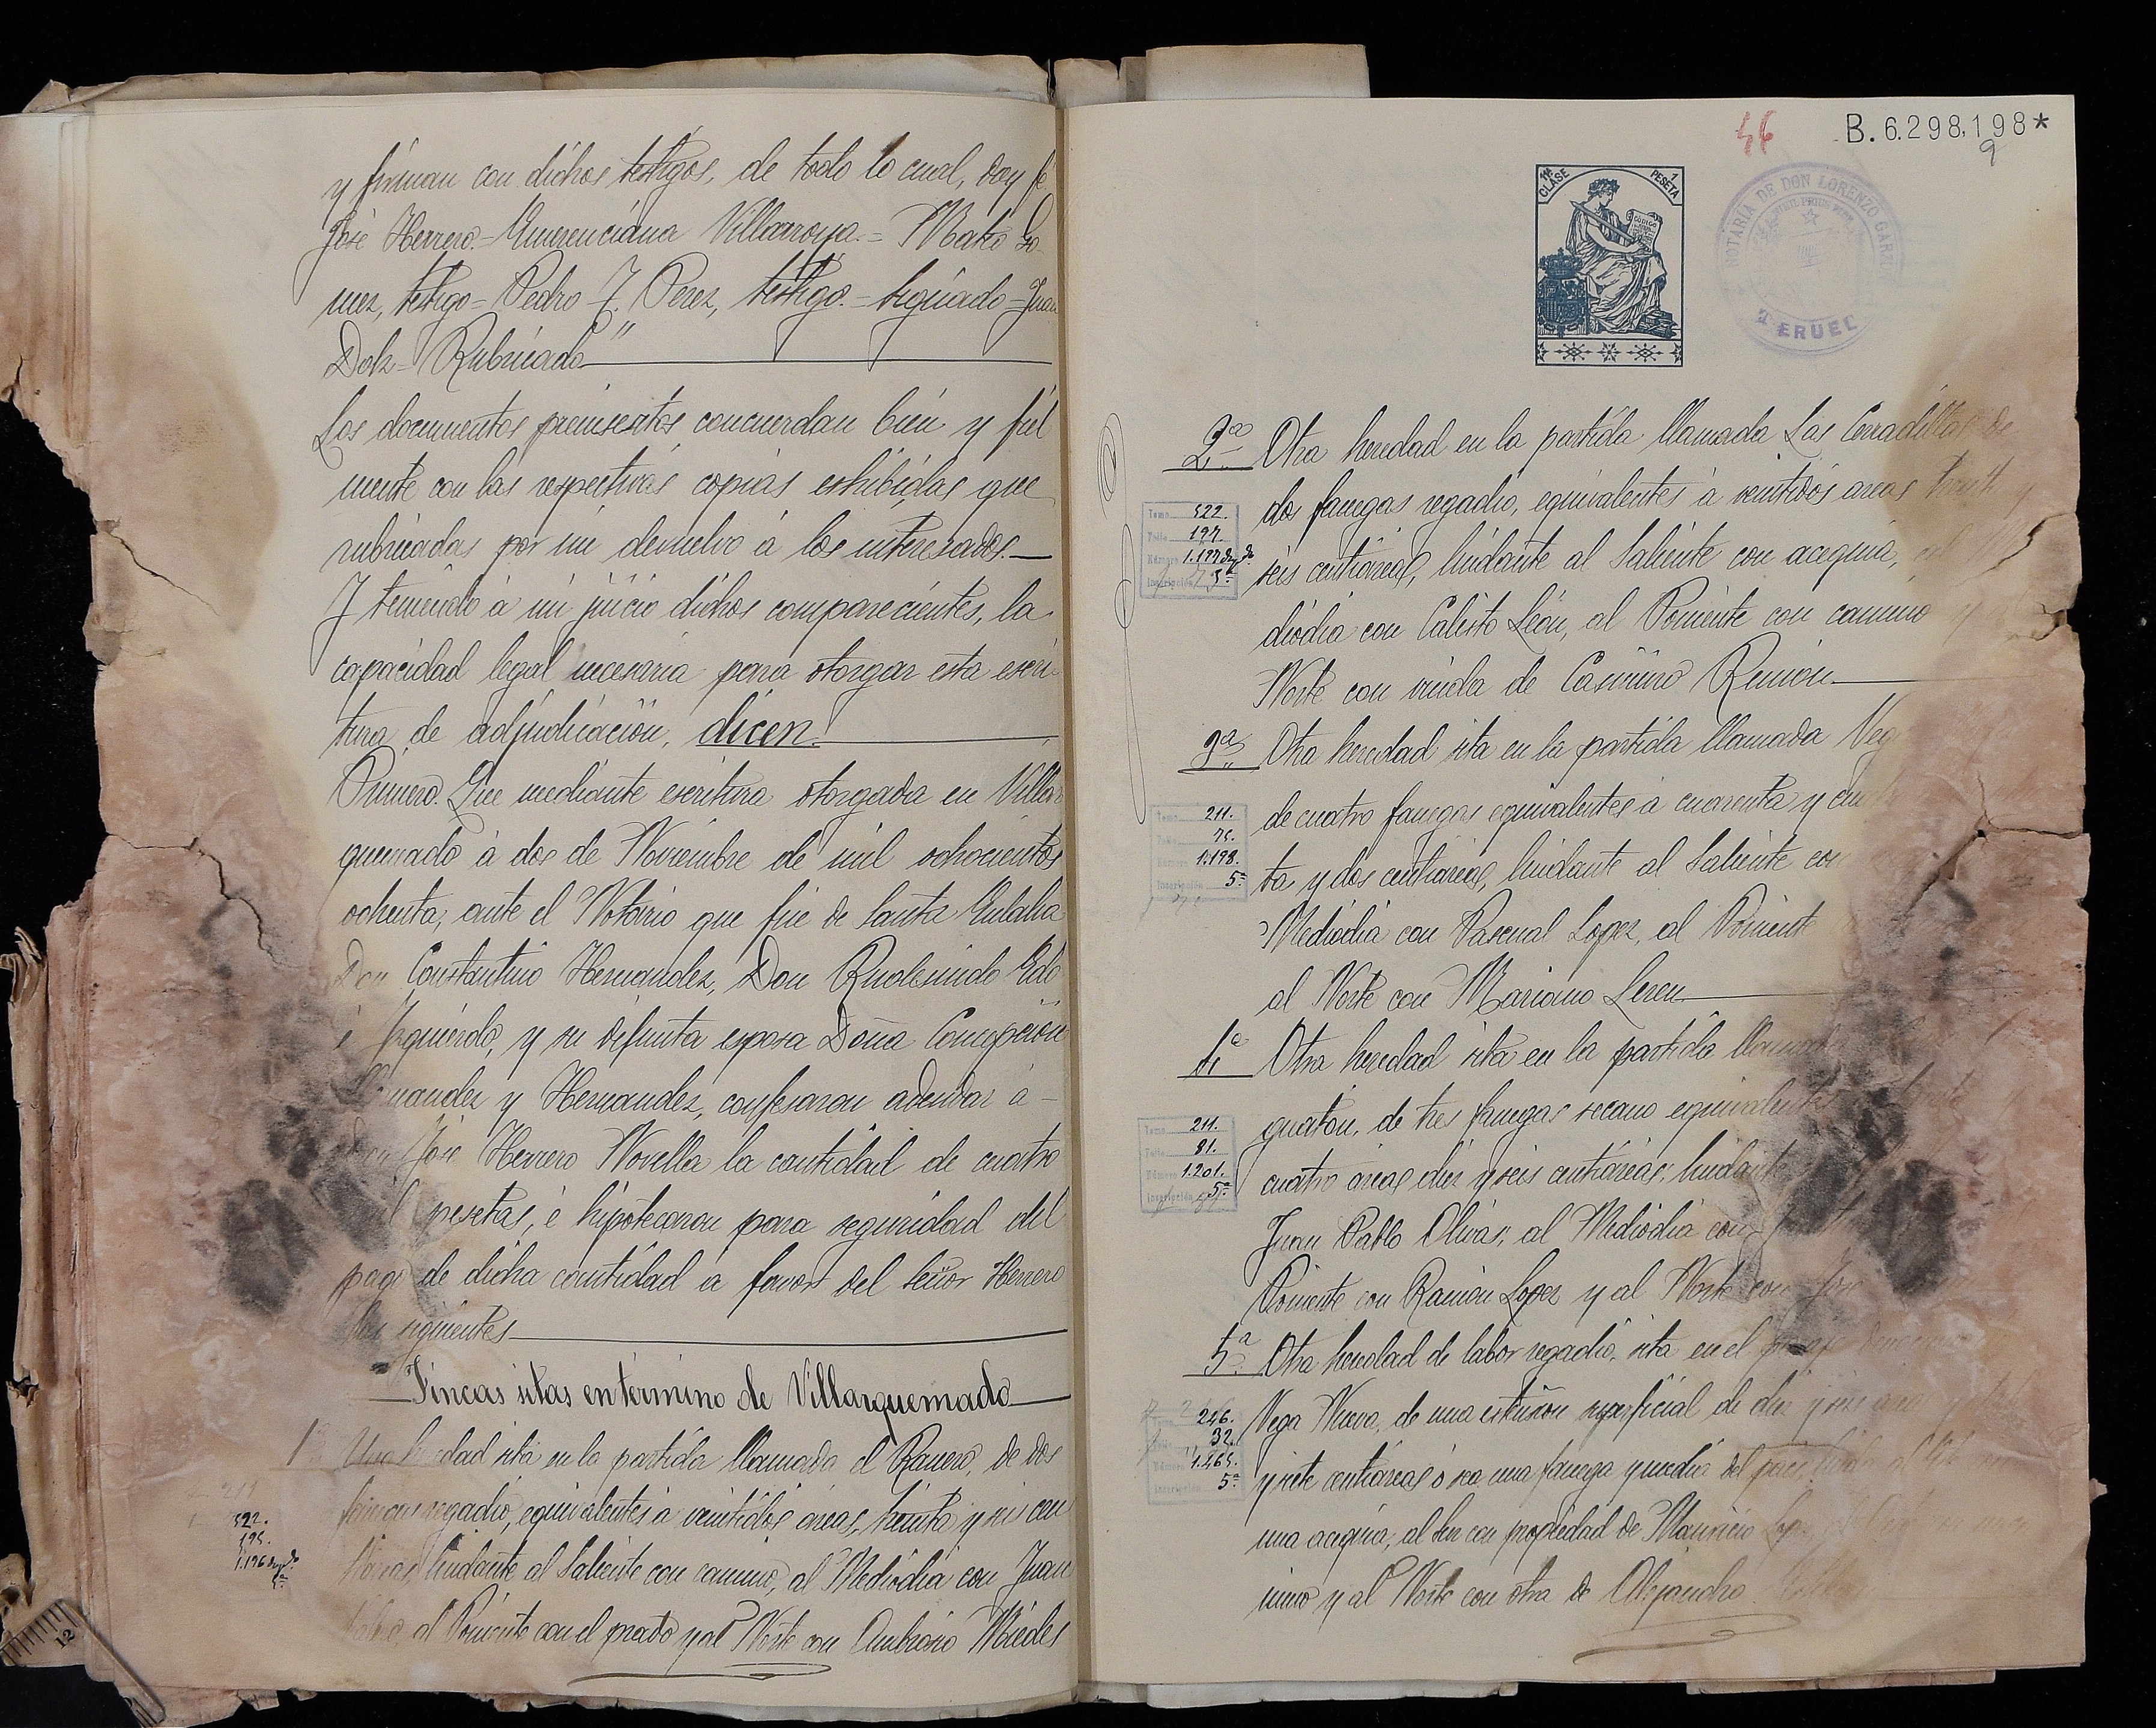 y firman con dichos testigos, de todo lo cual, doy fé
José Herrero.= Emerenciana Villarroya.= Mateo Go-
mez, testigo= Pedro J. Perez, testigo.= Signado= Juan
Dolz= Rubricado"
Los documentos preinsertos concuerdan bien y fiel
mente con las respectivas copias exhibidas que
rubricadas por mi devuelvo á los interesados.
Y teniendo á mi juicio dichos comparecientes, la
capacidad legal necesaria para otorgar esta escri-
tura de adjudicación, dicen:
Primero. Que mediante escritura otorgada en Villar
quemado á dos de Noviembre de mil ochocientos
ochenta, ante el Notario que fue de Santa Eulalia
Don Constantino Hernandez, Don Rudesindo Edo
é Izquierdo, y su difunta esposa Doña Concepción
Hernandez y Hernandez, confesaron adeudar á -
Don José Herrero Novella la cantidad de cuatro
mil pesetas, é hipotecaron para seguridad del
pago de dicha cantidad á favor del Señor Herrero
las siguientes
Fincas sitas en término de Villarquemado
1ª Una heredad sita en la partida llamada el Ranero, de dos
fanegas regadio, equivalentes á veintidos áreas, treinta y seis cen
tiáreas, lindante al Saliente con camino, al Mediodia con Juan
al Poniente con el prado y al Norte con Ambrosio Miedes
522.
195.
1.196 dupdo
5ª
56
B.6.298,198*
9
11ª CLASE
1 PESETA
NOTARÍA DE DON LORENZO GARZ
TERUEL
2ª Otra heredad en la partida llamada Las Cerradillas de
dos fanegas regadio, equivalentes á veintidós areas treinta y
seis centiáreas, lindante al Saliente con acequia,
diodia con Calisto León, al Poniente con camino y al
Norte con viuda de Casimiro Remón
Tomo 522.
Folio 197.
Número 1.197 dupdo
Inscripción 5ª
3ª Otra heredad sita en la partida llamada Vega
de cuatro fanegas equivalentes á cuarenta y cua
ta y dos centiáreas, lindante al Saliente con
Mediodia con Pascual Lopez, al Poniente
al Norte con Mariano Leren
Tomo 211.
Folio 75.
Número 1.198.
Inscripción 5ª
4ª Otra heredad sita en la partida llamada
guaton, de tres fanegas secano equivalentes
cuatro áreas diez y seis centiáreas; lindante
Juan Pablo Olivas; al Mediodia con
Poniente con Ramón Lopez y al Norte con José
Tomo 211.
Folio 81.
Número 1.201.
Inscripción 5ª
5ª Otra heredad de labor regadio, sita en el paraje
Vega Nueva, de una estensión superficial de diez y seis areas
y siete centiáreas ó sea una fanega y media del pais, linda al
una acequia; al Sur con propiedad de Mauricio Lopez,
mino y al Norte con otra de Alejandro
Tomo 246.
32.
Número 1.465.
Inscripción 5ª
12